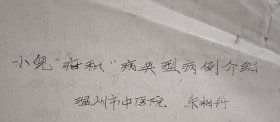 小儿“疳积”病典型病例介绍
温州市中医院 朱相丹